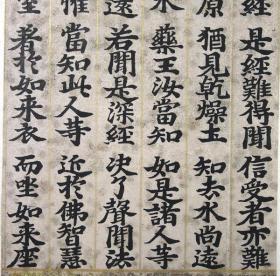 經 是經難得聞 信受者亦難
原 猶見乾燥土 知去水尚遠
水 藥王汝當知 如是諸人等
遠 若聞是深經 决了聲聞法
惟 當知此人等 近於佛智慧
室 著於如来衣 而坐如来座